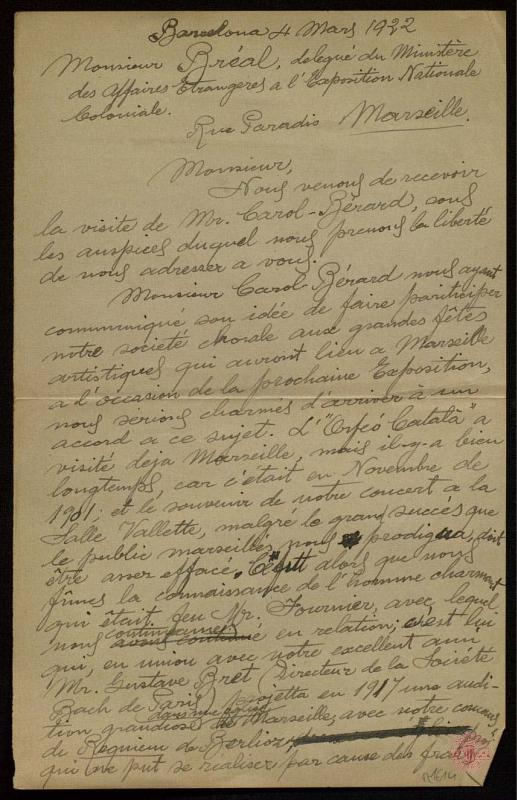 Barcelona 4 Mars 1922
Monsieur Bréal, delegué du Ministère
des Affaires Etrangeres a l'Exposition Nationale
Coloniale.
Rue Paradis Marseille.
Monsieur,
Nous venons de recevoir
la visite de Mr. Carol-Bérard, sous
les auspices duquel nous prenons la liberté
de nous adresser a vous.
Monsieur Carol-Bérard nous ayant
communiqué son idée de faire participer
notre société chorale aux grandes fêtes
artistiques qui auront lieu a Marseille
a l'occasion de la prochaine Exposition,
nous serions charmés d'arriver à un
accord a ce sujet. L'"Orfeó Català" a
visité deja Marseille, mais il-y-a bien
longtemps, car c'était en Novembre de
1901; et le souvenir de notre concert a la
Salle Vallette, malgré le grand succés que
le public marseillés nous prodigua, doit
être assez efface. C'est alors que nous
fîmes la connaissance de l'homme charmant
qui était feu Mr. Fournier, avec lequel
nous continuames en relation; c'est lui
qui, en union avec notre excellent ami
Mr. Gustave Bret (Directeur de la Société
Bach de Paris) projetta en 1917 une audi-
tion grandiose a Marseille, avec notre concours,
du Requiem de Berlioz,
qui ne put se réaliser par cause des frais